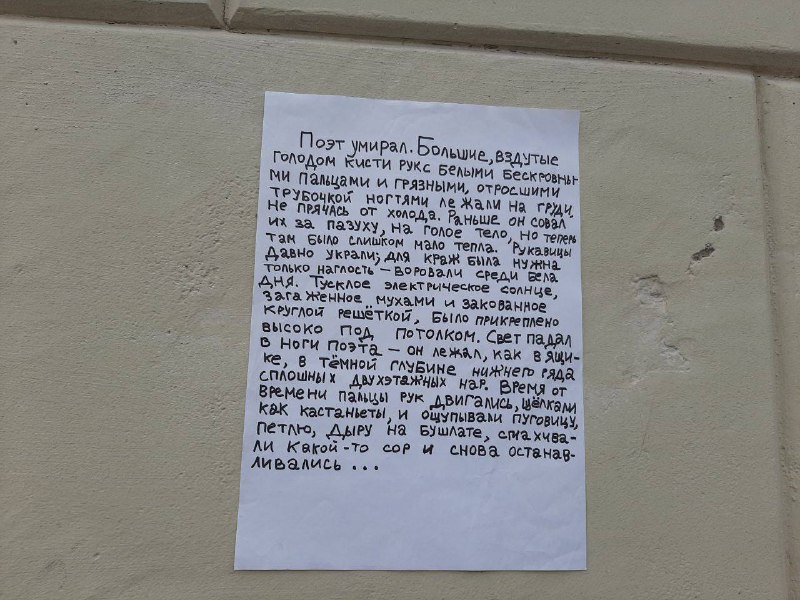 Поэт умирал. Большие, вздутые
голодом кисти рук с белыми бескровны-
ми пальцами и грязными, отросшими
трубочкой ногтями лежали на груди,
не прячась от холода. Раньше он совал
их за пазуху, на голое тело, но теперь
там было слишком мало тепла. Рукавицы
давно украли; для краж была нужна
только наглость — воровали среди бела
дня. Тусклое электрическое солнце,
загаженное мухами и закованное
круглой решёткой, было прикреплено
высоко под потолком. Свет падал
в ноги поэта — он лежал, как в ящи-
ке, в тёмной глубине нижнего ряда
сплошных двухэтажных нар. Время от
времени пальцы рук двигались, щёлкали
как кастаньеты, и ощупывали пуговицу,
петлю, дыру на бушлате, смахива-
ли какой-то сор и снова останав-
ливались ...